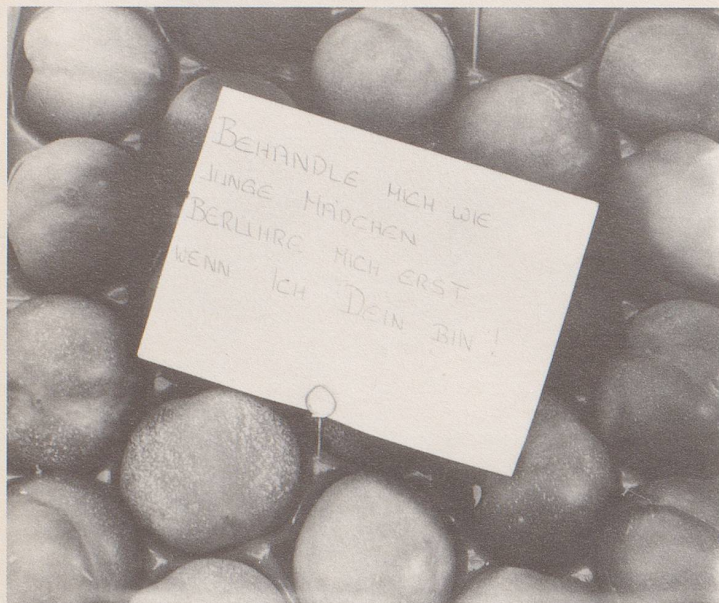 BEHANDLE MICH WIE
JUNGE MÄDCHEN
BERÜHRE MICH ERST
WENN ICH DEIN BIN!